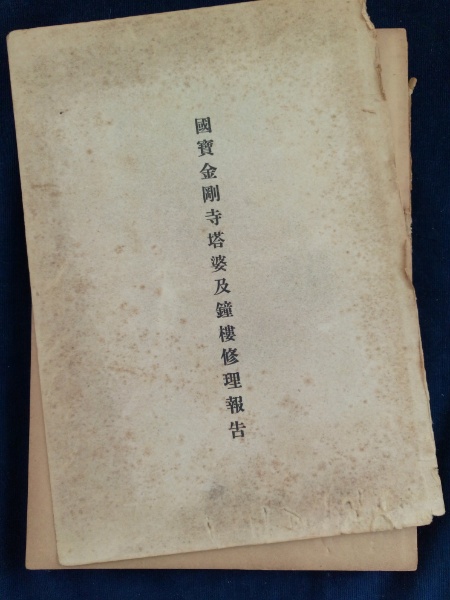 國寶金剛寺塔婆及鐘樓修理報告